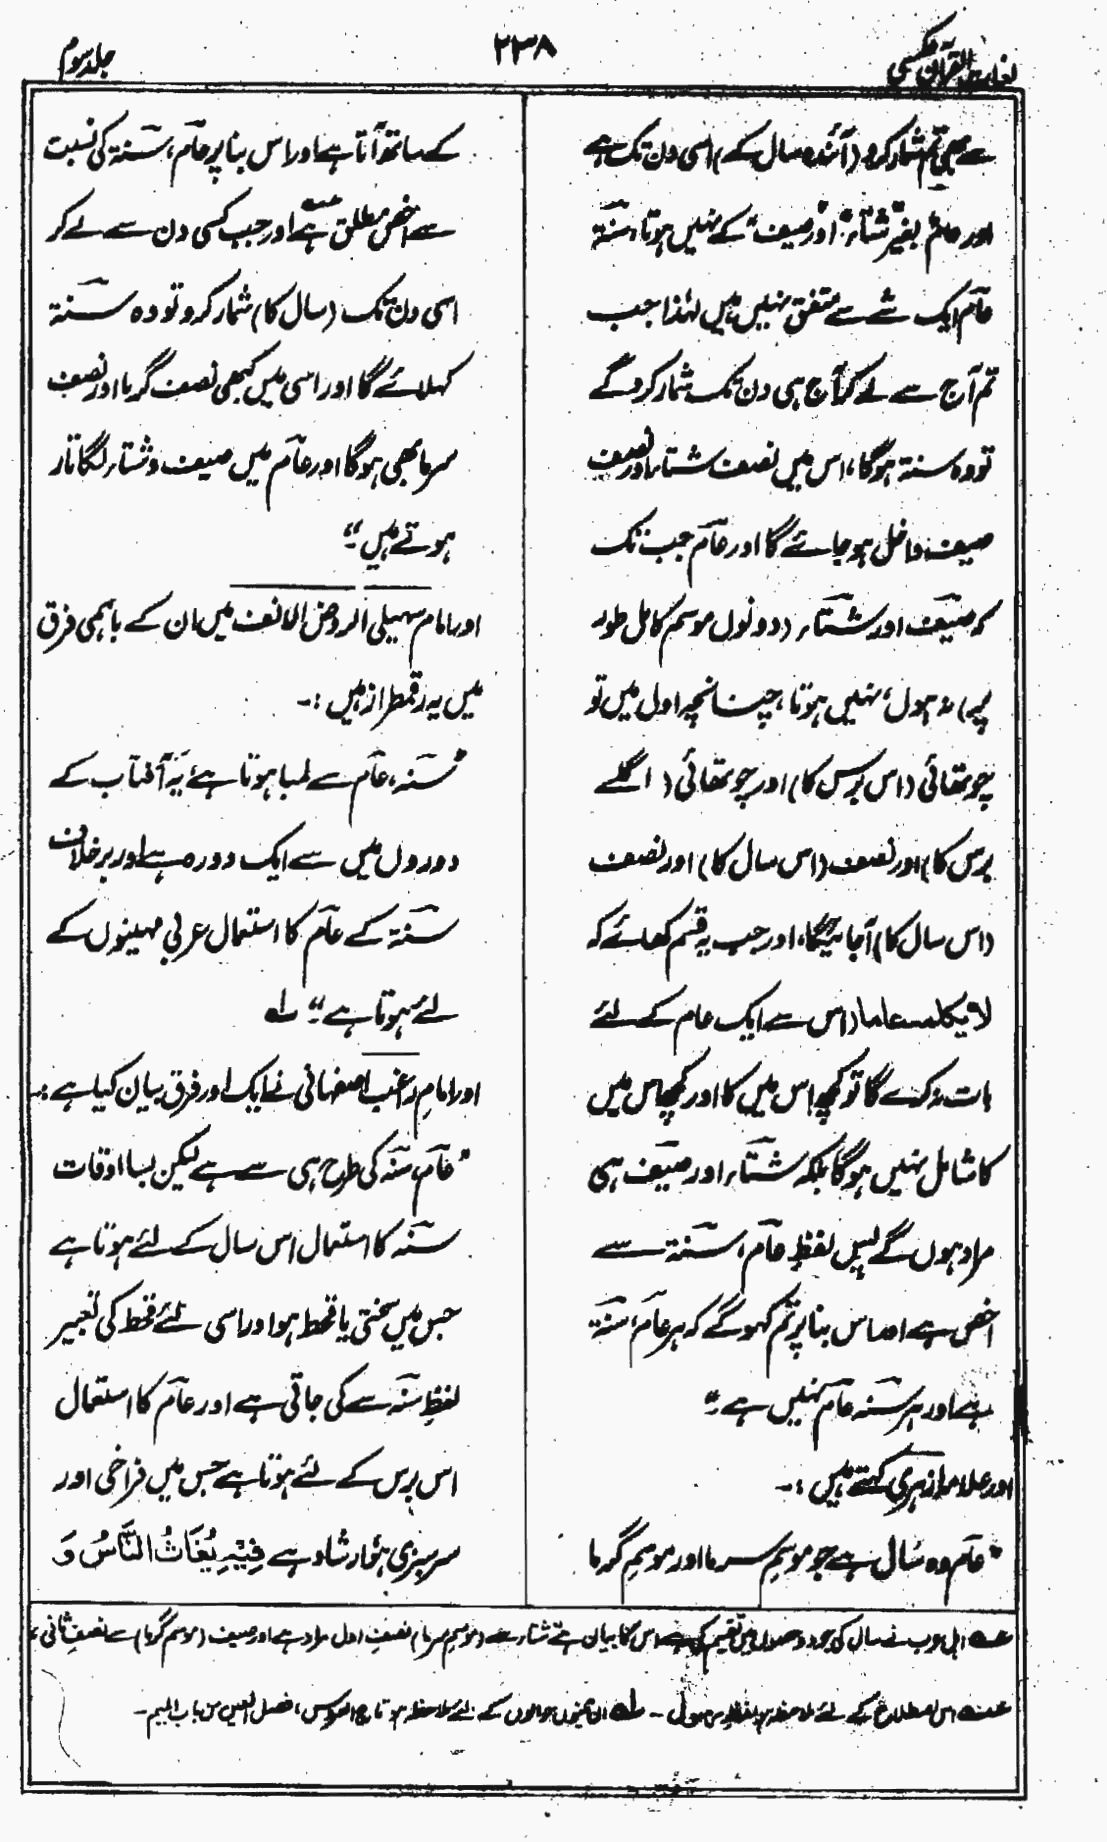 لغات القرآن عکسی
۲۳۸
جلد سوم
سے بھی تم شمار کرو (آئندہ سال کے) اسی دن تک ہے
اور عام بغیر "شتاء" اور "صیف" کے نہیں ہوتا، سنۃ
عام ایک شے سے متفق نہیں ہیں لہٰذا جب
تم آج سے لے کر آج ہی دن تک شمار کرو گے
تو وہ سنۃ ہوگا، اس میں نصف شتاء اور نصف
صیف داخل ہو جائے گا اور عام جب تک
کہ صیف اور شتاء (دونوں موسم کامل طور
پر) نہ ہوں، نہیں ہوتا، چنانچہ اول میں تو
چوتھائی (اس برس کا) اور چوتھائی (اگلے
برس کا) اور نصف (اس سال کا) اور نصف
(اس سال کا) آجائیگا، اور جب یہ قسم کھائے کہ
لا یکلمہ عاما (اس سے ایک عام کے لئے
بات نہ کرے گا تو کچھ اس میں کا اور کچھ اس میں
کا شامل نہیں ہوگا بلکہ شتاء اور صیف ہی
مراد ہوں گے پس لفظِ عام، سنۃ سے
اخص ہے اور اس بنا پر تم کہو گے کہ ہر عام، سنۃ
ہے اور ہر سنۃ عام نہیں ہے۔"
اور علامہ ازہری کہتے ہیں :۔
"عام وہ سال ہے جو موسمِ سرما اور موسمِ گرما
کے ساتھ آتا ہے اور اس بنا پر عام، سنۃ کی نسبت
سے اخص مطلق ہے اور جب کسی دن سے لے کر
اسی دن تک (سال کا) شمار کرو تو وہ سنۃ
کہلائے گا اور اسی میں کبھی نصف گرما اور نصف
سرما بھی ہوگا اور عام میں صیف و شتاء لگاتار
ہوتے ہیں۔"
اور امام سہیلی الروض الانف میں ان کے باہمی فرق
میں یہ رقمطراز ہیں :۔
"سنہ، عام سے لمبا ہوتا ہے یہ آفتاب کے
دوروں میں سے ایک دورہ ہے اور برخلاف
سنۃ کے عام کا استعمال عربی مہینوں کے
لئے ہوتا ہے۔" لہ
اور امام راغب اصفہانی نے ایک اور فرق بیان کیا ہے :۔
"عام، سنہ کی طرح ہی سے ہے لیکن بسا اوقات
سنہ کا استعمال اس سال کے لئے ہوتا ہے
جس میں سختی یا قحط ہو اور اسی لئے قحط کی تعبیر
لفظِ سنہ سے کی جاتی ہے اور عام کا استعمال
اس برس کے لئے ہوتا ہے جس میں فراخی اور
سرسبزی ہو، ارشاد ہے فِیْہِ یُغَاثُ النَّاسُ وَ
عہ اہل عرب نے سال کی جو دو حصوں میں تقسیم کی ہے اس کا بیان ہے شتاء سے (موسمِ سرما) نصفِ اول مراد ہے اور صیف (موسم گرما) سے نصفِ ثانی
عہ اس اصطلاح کے لئے ملاحظہ ہو لفظ ہول ۔ لہ ان تینوں حوالوں کے لئے ملاحظہ ہو تاج العروس، فصل العین من باب المیم۔